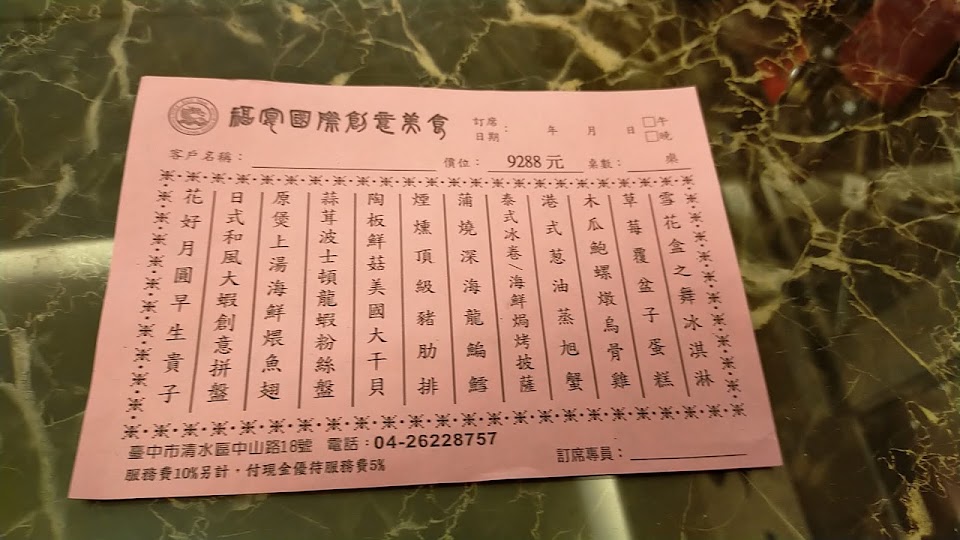 福宴國際創意美食
訂席日期： 年 月 日 □午 □晚
客戶名稱： 價位： 9288 元 桌數： 桌
花好月圓早生貴子
日式和風大蝦創意拼盤
原煲上湯海鮮煨魚翅
蒜茸波士頓龍蝦粉絲盤
陶板鮮菇美國大干貝
煙燻頂級豬肋排
蒲燒深海龍鯿鱈
泰式冰卷/海鮮焗烤披薩
港式葱油蒸旭蟹
木瓜鮑螺燉烏骨雞
草莓覆盆子蛋糕
雪花盒之舞冰淇淋
臺中市清水區中山路18號 電話：04-26228757
服務費10%另計，付現金優待服務費5%
訂席專員：